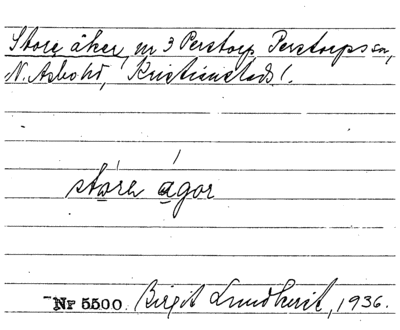 Store åker, nr 3 Perstorp Perstorps sn,
N. Asbo hd, Kristianstads l.
stóra ágor
Nr 5500. Birgit Lundkvist, 1936.